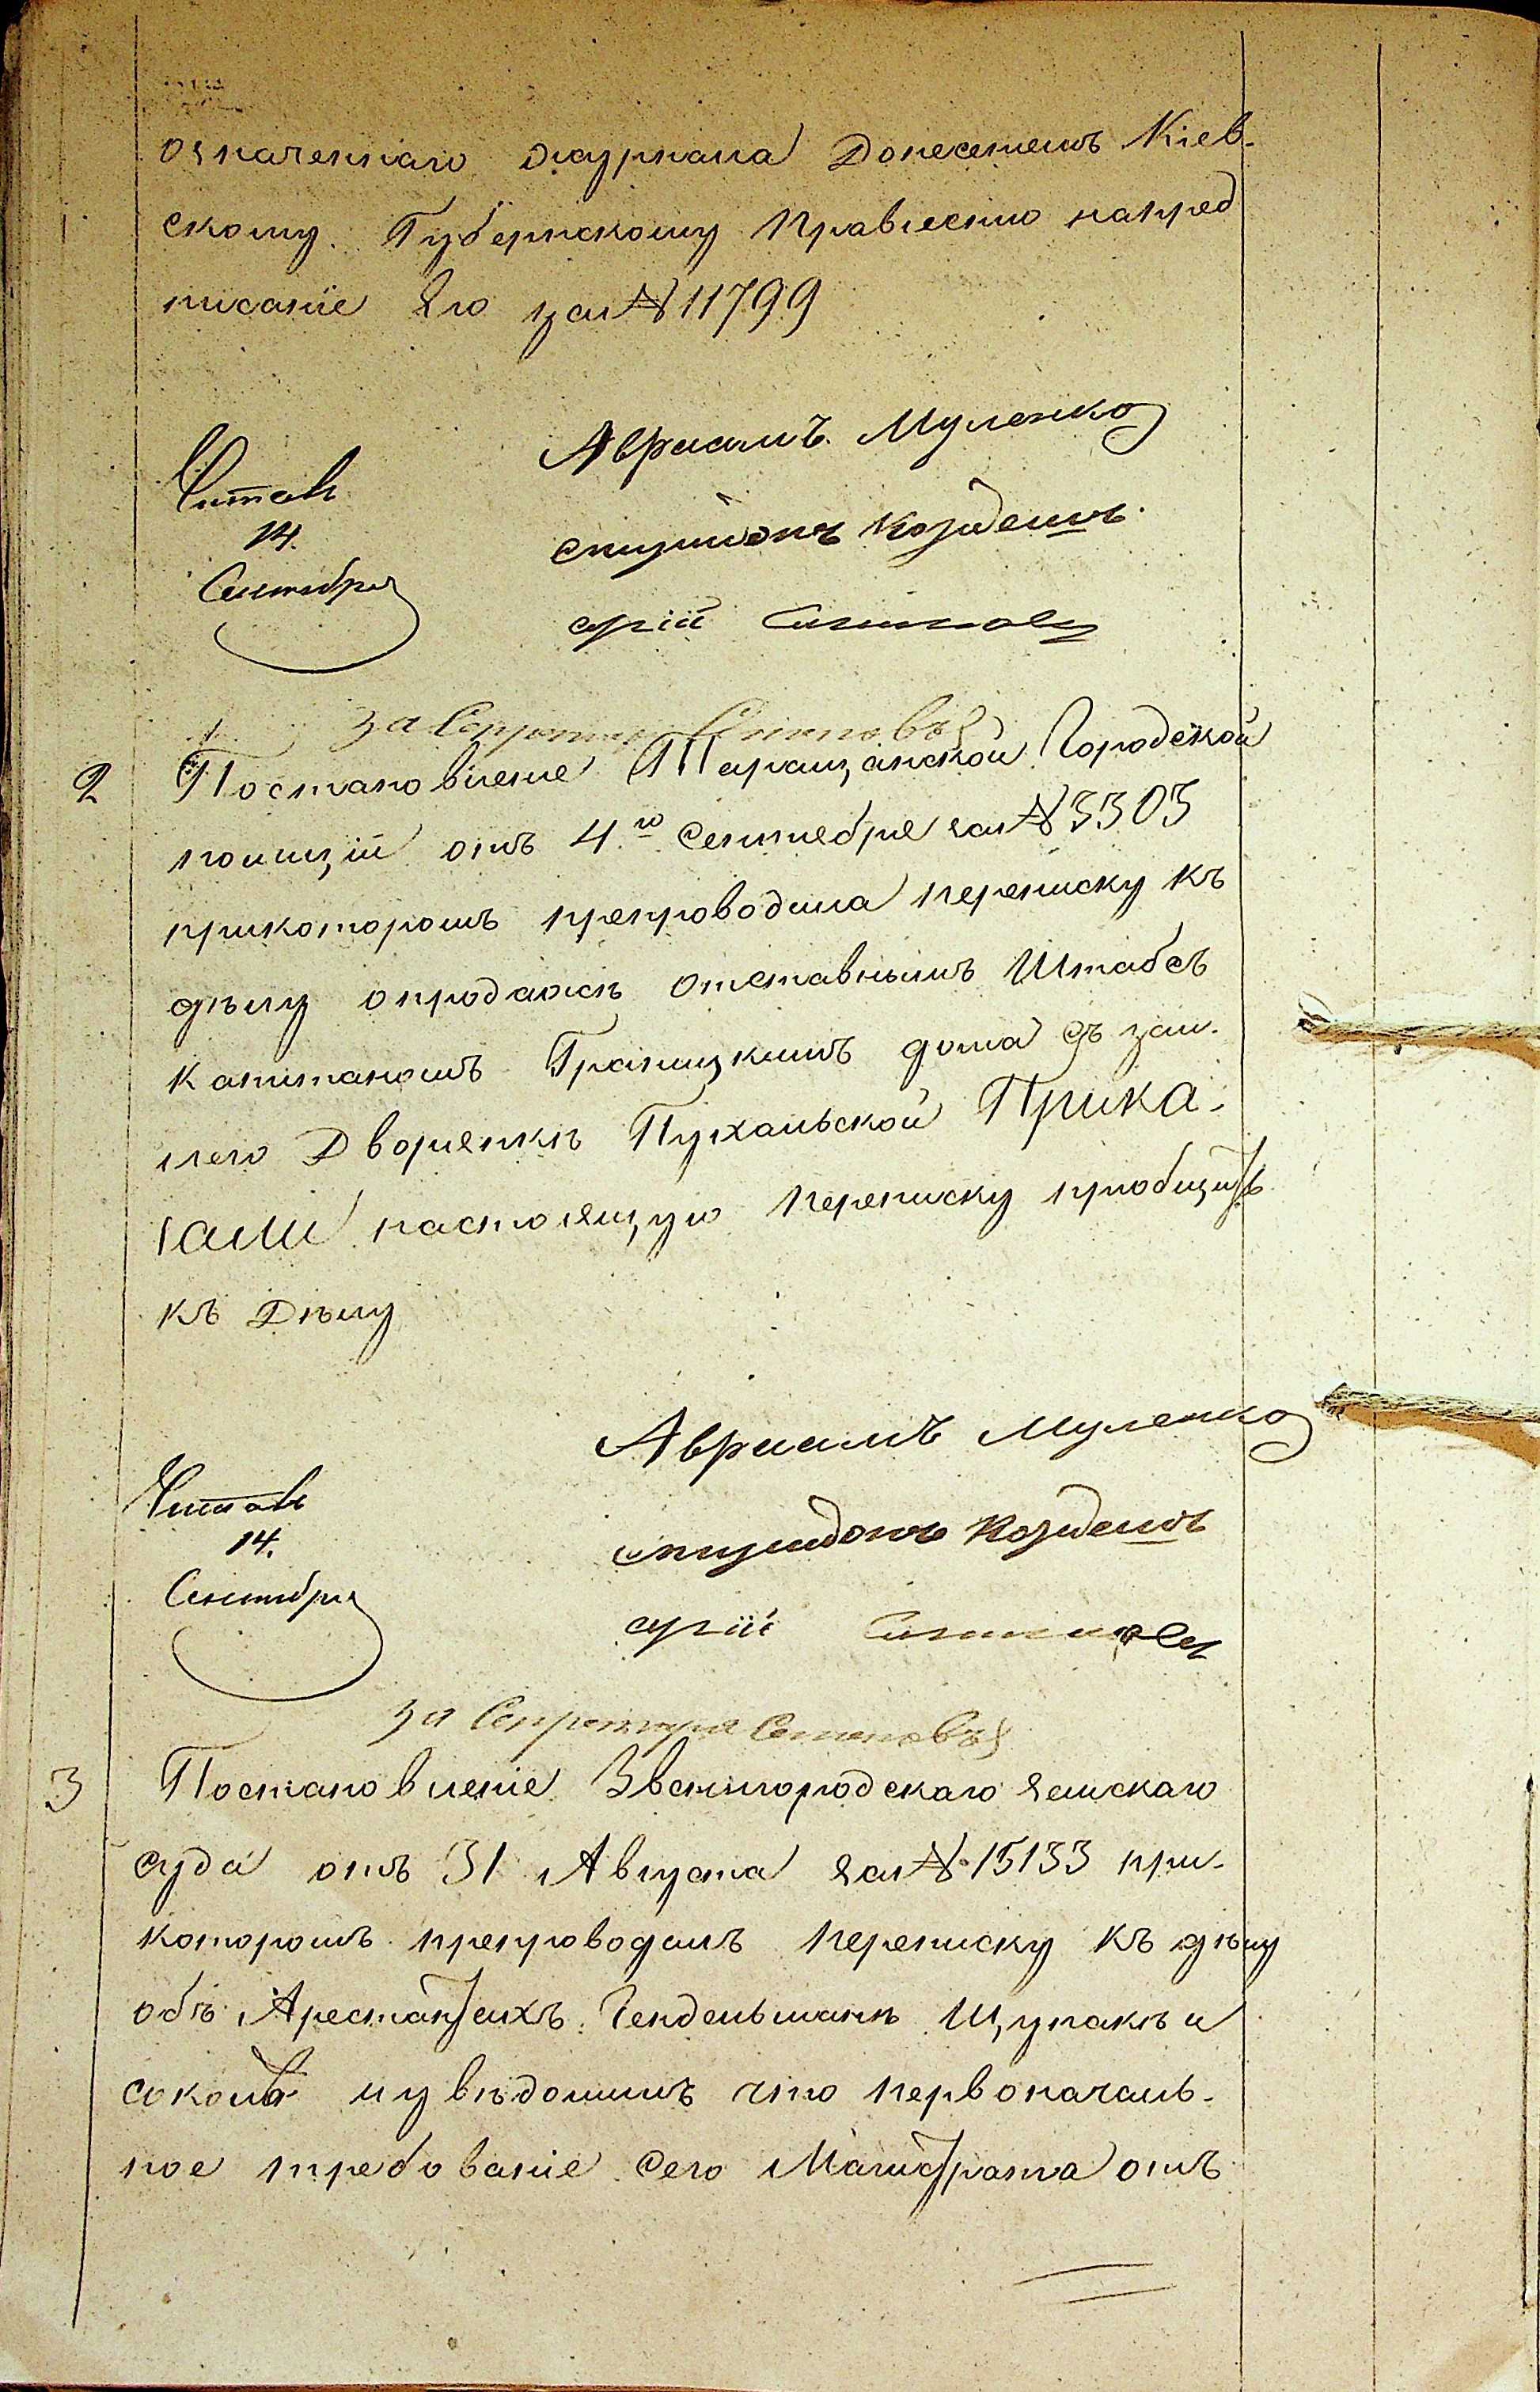 означеннаго журнала Донесеніемъ Кіев-
скому Губернскому Правленію напред
писаніе Его за № 11799
Авраамъ Муленко
Читалъ
14.
Сентября
за Секретаря
2 Постановленіе Таращанской Городской
полиціи отъ 4.го Сентебре за № 3303
прикоторомъ препроводила переписку къ
дѣлу опродажѣ отставнымъ Штабсъ
капитаномъ Границкимъ дома съ зем-
лею Дворянкѣ Пухальской Прика-
зали настоящую переписку приобщить
къ Дѣлу
Авраамъ Муленко
Читалъ
14.
Сентября
за Секретаря Семеновъ
3 Постановленіе Звенигородскаго земскаго
суда отъ 31 Августа за № 15133 при-
которомъ препроводилъ переписку къ дѣлу
объ Арестантахъ Гендельманѣ Щупакѣ и
иувѣдомилъ что первоначаль-
ное требованіе Сего Магистрата отъ